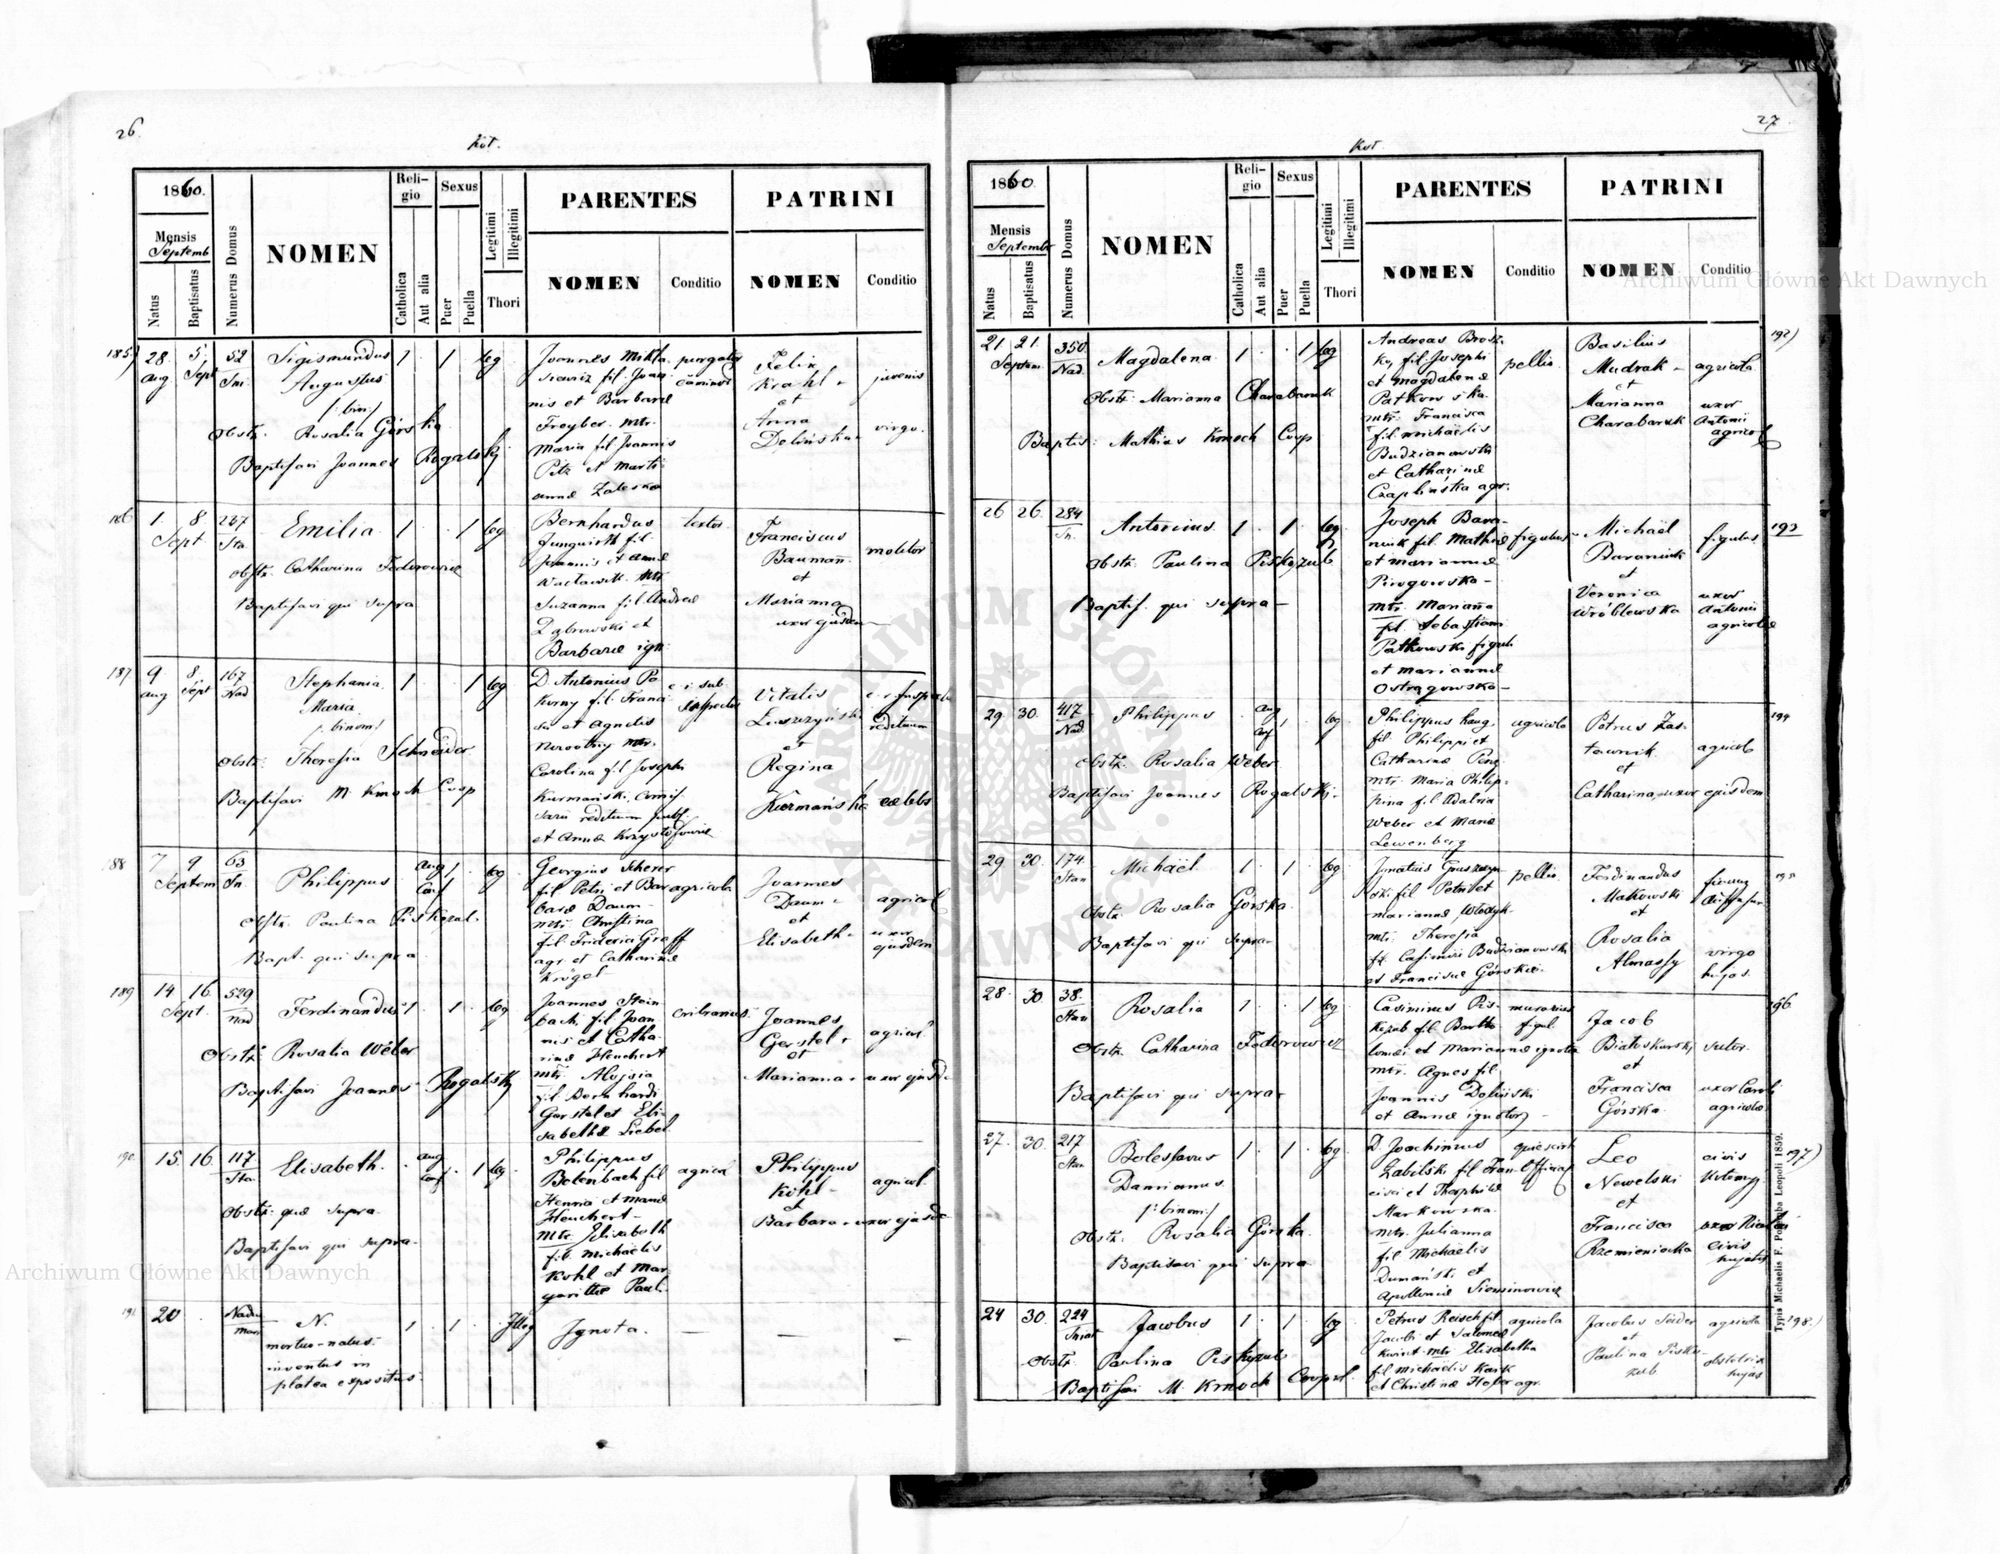 26.
Kot.
1860.
Mensis
Septemb
Natus
Baptisatus
Numerus Domus
NOMEN
Religio
Catholica
Aut alia
Sexus
Puer
Puella
Legitimi
Illegitimi
Thori
PARENTES
NOMEN
Conditio
PATRINI
NOMEN
Conditio
185)
28. 5. 52
Aug Sept
Sigismundus
Augustus
/:bin:/
1 1 leg
Obstr. Rosalia Górska
Baptisavi Joannes Rogalskj
Joannes Mikla
siewicz fil. Joan
nis et Barbarae
Freyber. mtr.
Maria fil Joannis
Pitz et Marti
annae Zaleska
Felix
Krahl
et
Anna
Dolińska
juvenis
virgo.
186
1. 8. 237
Sept Sta.
Emilia
1 1 leg
Obstr. Catharina Fedorowicz
Baptisavi qui supra
Bernhardus
fil.
Joannis et Annae
mtr.
Suzanna fil. Andreae
Dąbrowski et
Barbarae ign.
textor
Franciscus
Bauman
et
Marianna
uxor ejusdem
molitor
187
9 8. 167
Aug Sept Nad
Stephania
Maria
/:binom:/
1 1 leg
Obstr. Theresia Schneider
Baptisavi M. Kmoch Coop
D. Antonius Po
korny fil. Franci
sci et Agnetis
Nowotny mtr.
Carolina fil Josephi
Kurmański
et Annae
Vitalis
Leszczyński
et
Regina
Kurmańska
188
7 9 63
Septem Sn.
Philippus
Aug 1 leg
Conf
Obstr. Paulina Piskozub.
Bapt. qui supra
Georgius Scherer
fil Petri et Bar
barae Daum
mtr. Christina
fil. Friderici Graff
agr. et Catharinae
Krögel
agricola
Joannes
Daum
et
Elisabeth
agricol
uxor
ejusdem
189
14 16. 529
Sept. Nad
Ferdinandus
1 1 leg
Obstr. Rosalia Wéber
Baptisavi Joannes Rogalskj
Joannes Stein
bach, fil Joan
nis et Catha
rinae Heuchert
mtr. Aloysia
fil Bernhardi
Gerstel et Eli
sabethae Liebel
cribrarius
Joannes
Gerstel
et
Marianna
agricol.
uxor ejusd.
190.
15. 16. 117
Sta.
Elisabeth.
Aug 1 leg
Conf
Obstr. quae supra.
Baptisavi qui supra.
Philippus
Bolenbach fil
Henrici et Mariae
Heuchert
mtr. Elisabeth
fil. Michaelis
Kohl et Mar
garithae Paul.
agricol
Philippus
Kohl
et
Barbara uxor ejusd.
agricol.
191.
20
N.
mortuo-natus.
inventus in
platea expositus
1 1 Illeg
Ignota.
27
Kot
1860.
Mensis
Septembr
Natus
Baptisatus
Numerus Domus
NOMEN
Religio
Catholica
Aut alia
Sexus
Puer
Puella
Legitimi
Illegitimi
Thori
PARENTES
NOMEN
Conditio
PATRINI
NOMEN
Conditio
21 21. 350.
Septem. Nad.
Magdalena
1 1 leg
Obstr. Marianna Charabaruk
Baptis: Mathias Kmoch Coop
Andreas
fil. Josephi
et Magdalenae
Patkowska
mtr. Francisca
fil. Michaelis
Budzianowski
et Catharinae
Czaplińska agr.
pellio
Basilius
Mudrak
et
Marianna
Charabaruk
agricola
uxor
Antonii
agricol
192)
26 26. 284
Sn.
Antonius
1 1 leg
Obstr. Paulina Piskozub
Baptis. qui supra
Joseph Bara
niuk fil. Mathiae
et Mariannae
Pirogowska
mtr. Marianna
fil. Sebastiani
Patkowski figuli
et Mariannae
Ostrągowska
figulus
Michaël
Baraniuk
et
Veronica
Wróblewska
figulus
uxor
Antonii
agricolae
193
29. 30. 417
Nad.
Philippus
Aug 1 leg
Conf
Obstr. Rosalia Weber
Baptisavi Joannes Rogalskj.
Philippus Haug
fil. Philippi et
Catharinae
mtr. Maria Philip
pina fil.
Weber et Mariae
Lewenberg
agricola
Petrus Zas
tawnik
et
Catharina, uxor ejusdem
agricol
194
29 30. 174
Stan
Michaël.
1 1 leg
Obstr. Rosalia Górska.
Baptisavi qui supra
Ignatius
fil. Petri et
Mariannae
mtr. Theresia
fil. Casimiri Budzianowski
et Franciscae Górskie.
pellio
Ferdinandus
Makowski
et
Rosalia
Almassy
virgo
hujas.
195
28. 30. 38.
Stan
Rosalia
1 1 leg
Obstr. Catharina Fedorowicz
Baptisavi qui supra
Casimirus Pis
kozub fil. Bartho
lomei et Mariannae ignotae
mtr. Agnes fil
Joannis Doliński
et Annae ignotorj
murarius
figul
Jacob
Białoskurskj
et
Francisca
Górska
sutor
uxor Caroli
agricola
196
27. 30. 217
Stan
Boleslavus
Damianus
/:binom:/
1 1 leg
Obstr. Rosalia Górska
Baptisavi qui supra
D. Joachimus
Zabilski fil. Fran
cisci et Theophilae
Markowska
mtr. Julianna
fil Michaelis
Dumański et
Apolloniae Sieminowicz
Leo
Newelski
et
Francisca
Rzemieniocka
civis
Kolomyj
uxor Nicolai
civis
hujatis
197)
24 30. 224
Jacobus
1 1 leg
Obstr. Paulina Piskozub
Baptisavi M. Kmoch Cooper.
Petrus Reisch fil
Jacobi et Salomeae
Kwint mtr Elisabetha
fil Michaelis Kark
et Christinae Hofer agr.
agricola
Jacobus Seider
et
Paulina Pisko
zub
agricola
obstetrix
hujas
198.)
Typis Michaelis F. Poremba Leopoli 1859.
Archiwum Główne Akt Dawnych
Archiwum Główne Akt Dawnych
ARCHIWUM GŁÓWNE AKT DAWNYCH